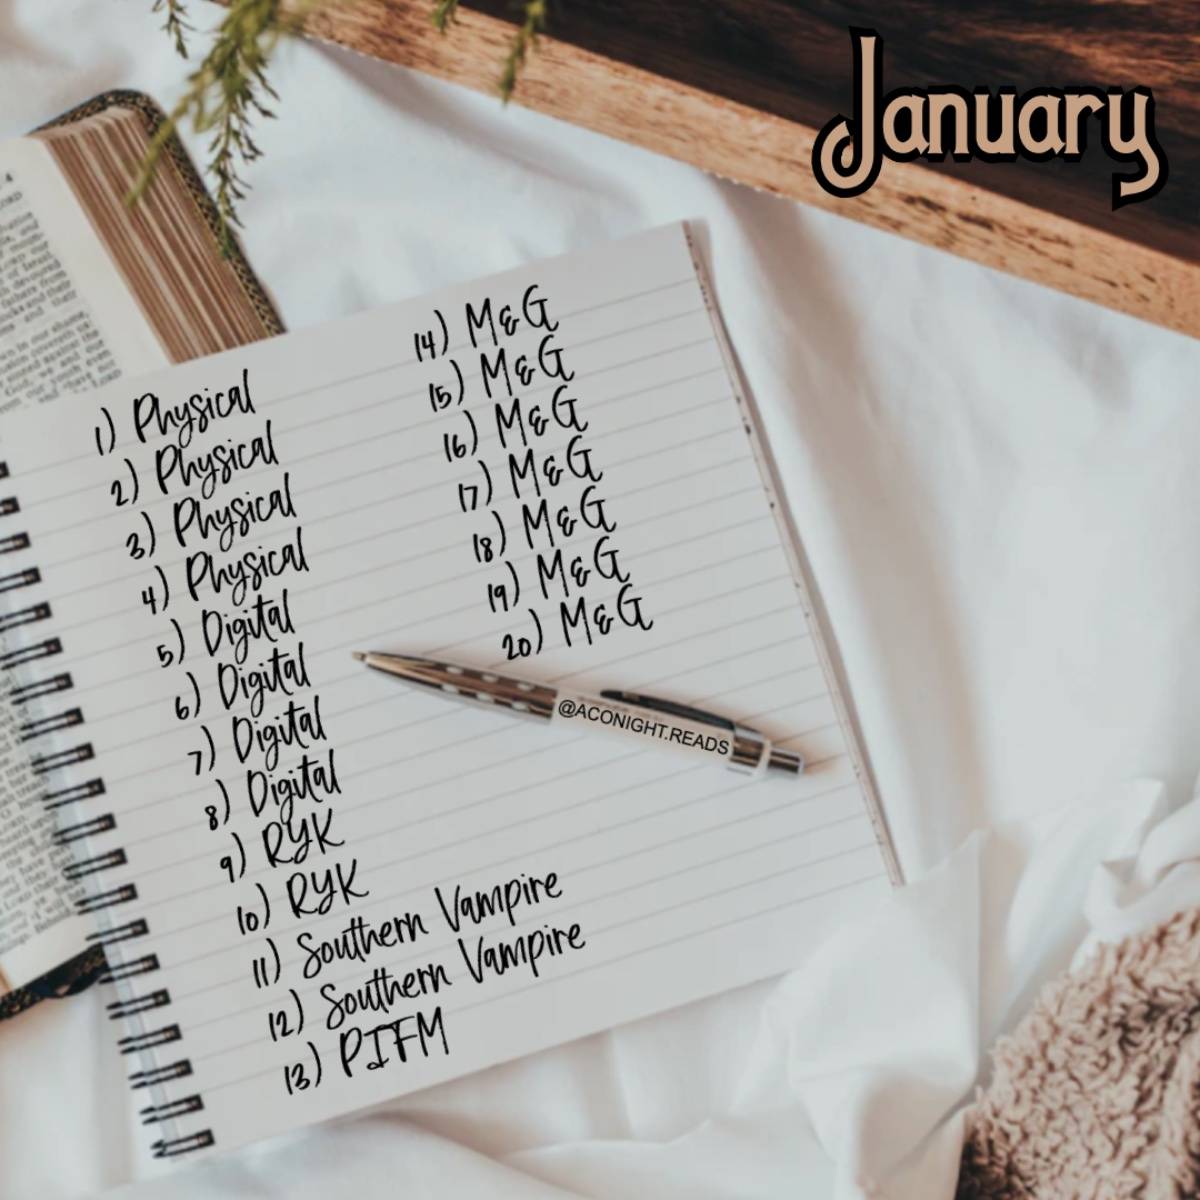 January
1) Physical
2) Physical
3) Physical
4) Physical
5) Digital
6) Digital
7) Digital
8) Digital
9) RYK
10) RYK
11) Southern Vampire
12) Southern Vampire
13) PIFM
14) M&G
15) M&G
16) M&G
17) M&G
18) M&G
19) M&G
20) M&G
@ACONIGHT.READS